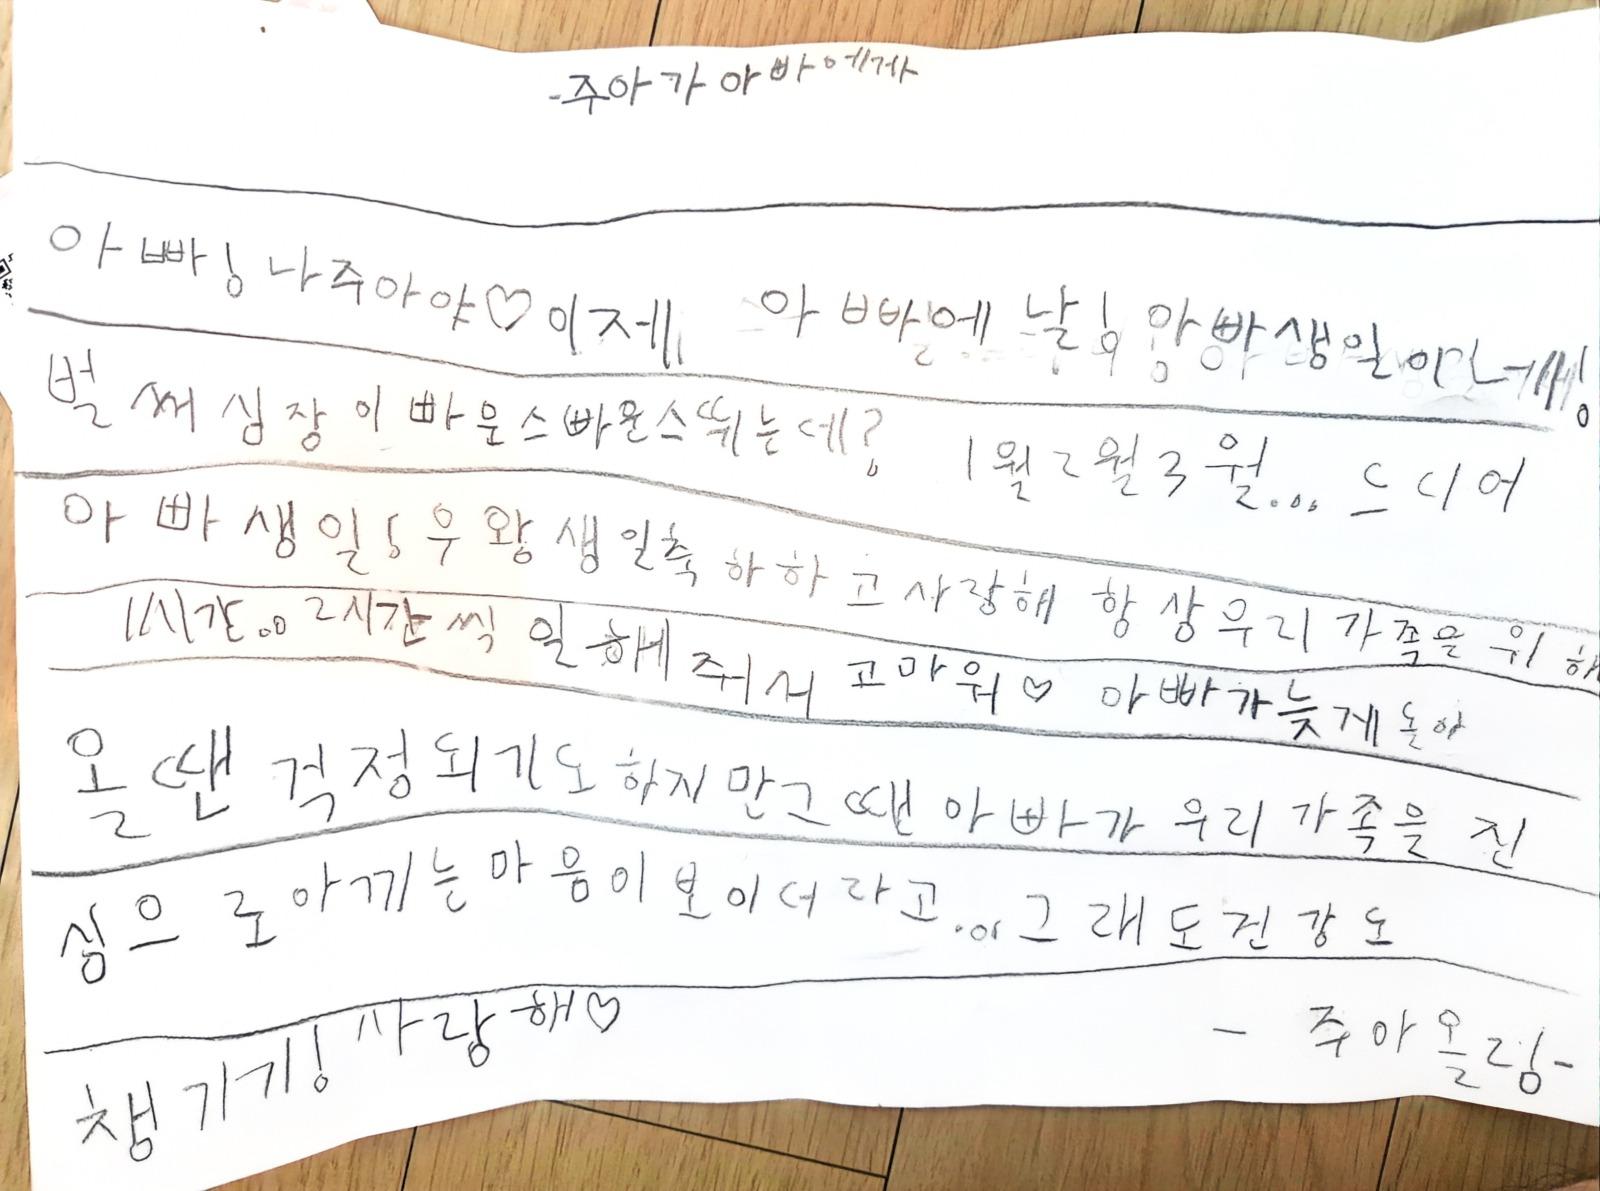 -주아가 아빠에게
아빠! 나 주아야♡ 이제 아빠에 날! 아빠 생일이 
벌써 심장이 빠운스 빠운스 뛰는데? 1월 2월 3월... 드디어
아빠 생일! 우왕 생일축하하고 사랑해 항상 우리 가족을 위해
1시간.. 2시간씩 일해줘서 고마워♡ 아빠가 늦게 돌아
올 땐 걱정되기도 하지만 그땐 아빠가 우리 가족을 진
심으로 아끼는 마음이 보이더라고... 그래도 건강도
챙기기! 사랑해♡
- 주아올림-